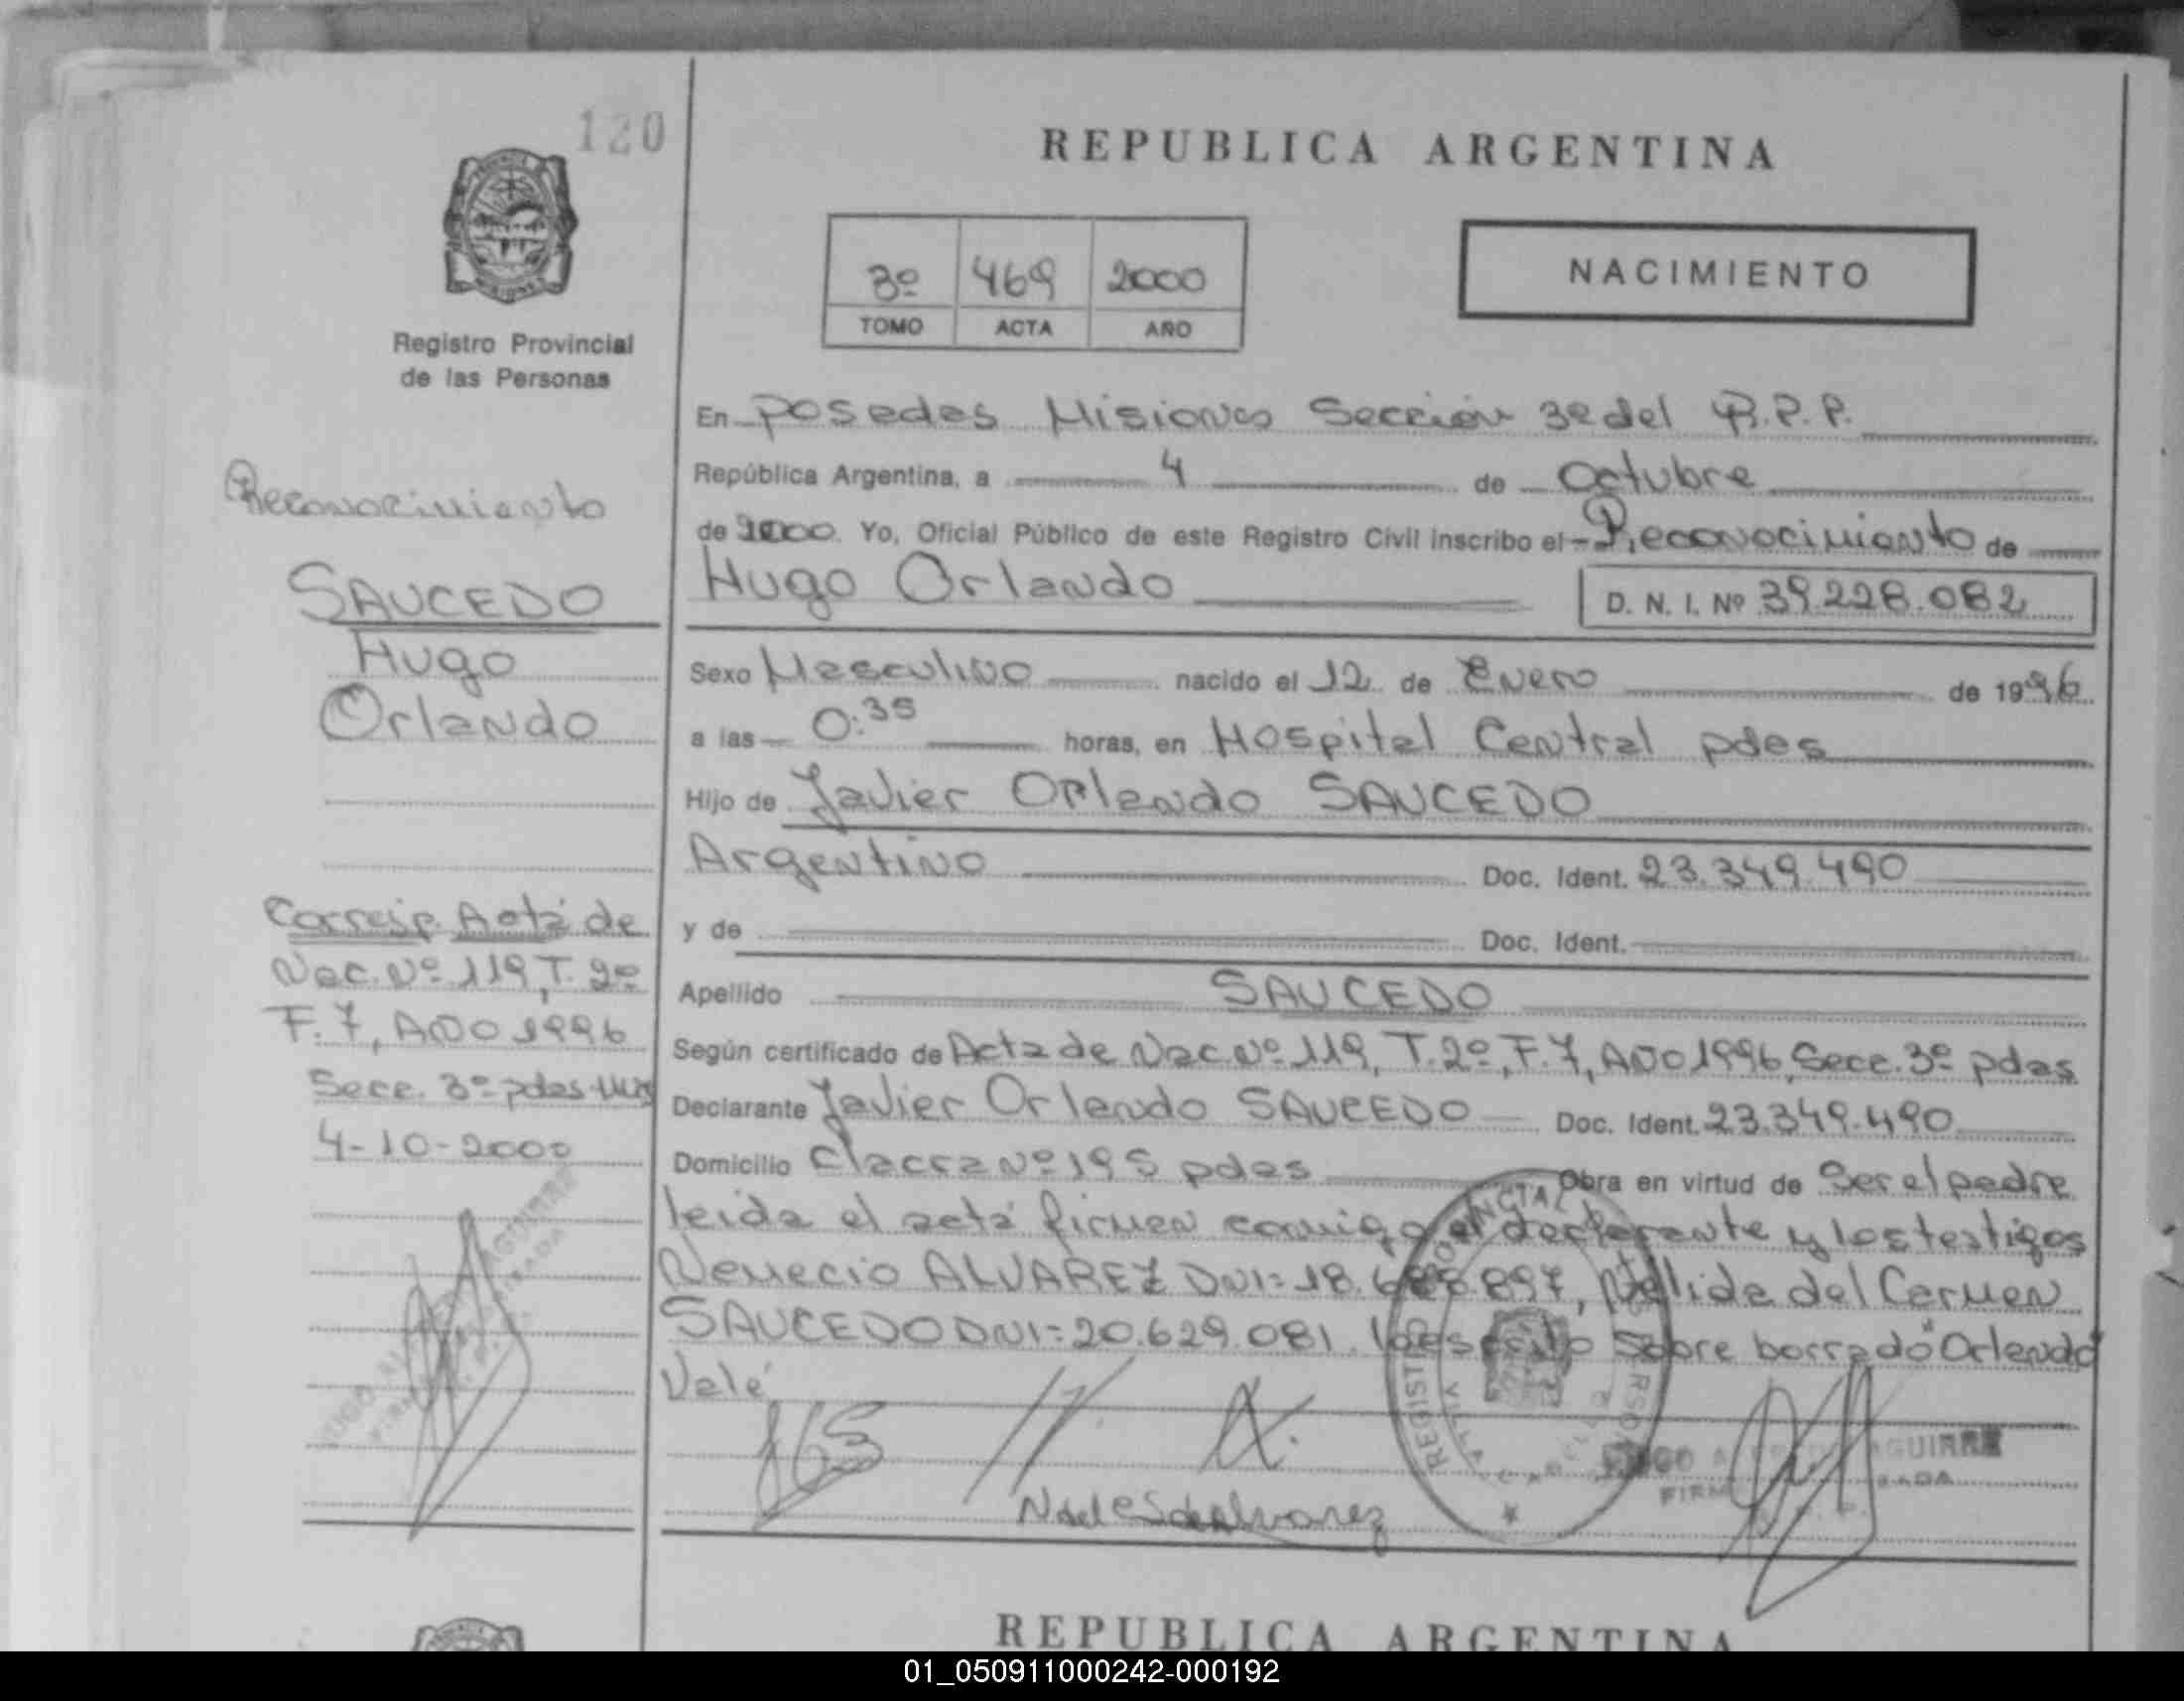 120
REPUBLICA ARGENTINA
3º 469 2000
TOMO ACTA AÑO
NACIMIENTO
Registro Provincial
de las Personas
En Posadas Misiones Sección 3º del R.P.P.
República Argentina, a 4 de Octubre
de 2000. Yo, Oficial Público de este Registro Civil inscribo el Reconocimiento de
Hugo Orlando D. N. I. Nº 39.228.082
Sexo Masculino nacido el 12 de Enero de 1996
a las 0:35 horas, en Hospital Central pdas
Hijo de Javier Orlando SAUCEDO
Argentino Doc. Ident. 23.349.490
y de Doc. Ident.
Apellido SAUCEDO
Según certificado de Acta de Nac. Nº 119, T. 2º, F. 7, Año 1996, Secc. 3º pdas
Declarante Javier Orlando SAUCEDO Doc. Ident. 23.349.490
Domicilio Chacra Nº 195 pdas Obra en virtud de Ser el padre
leida el acta firman conmigo el declarante y los testigos
Nemecio ALVAREZ DNI= 18.688.897, Nélida del Carmen
SAUCEDO DNI= 20.629.081. lo escrito sobre borrado "Orlando"
Vale
N del C S de Alvarez
HUGO AGUIRRE
Reconocimiento
SAUCEDO
Hugo
Orlando
Corresp. Acta de
Nac. Nº 119, T. 2º
F. 7, Año 1996
Secc. 3º pdas Mnes
4-10-2000
REPUBLICA ARGENTINA
01_050911000242-000192